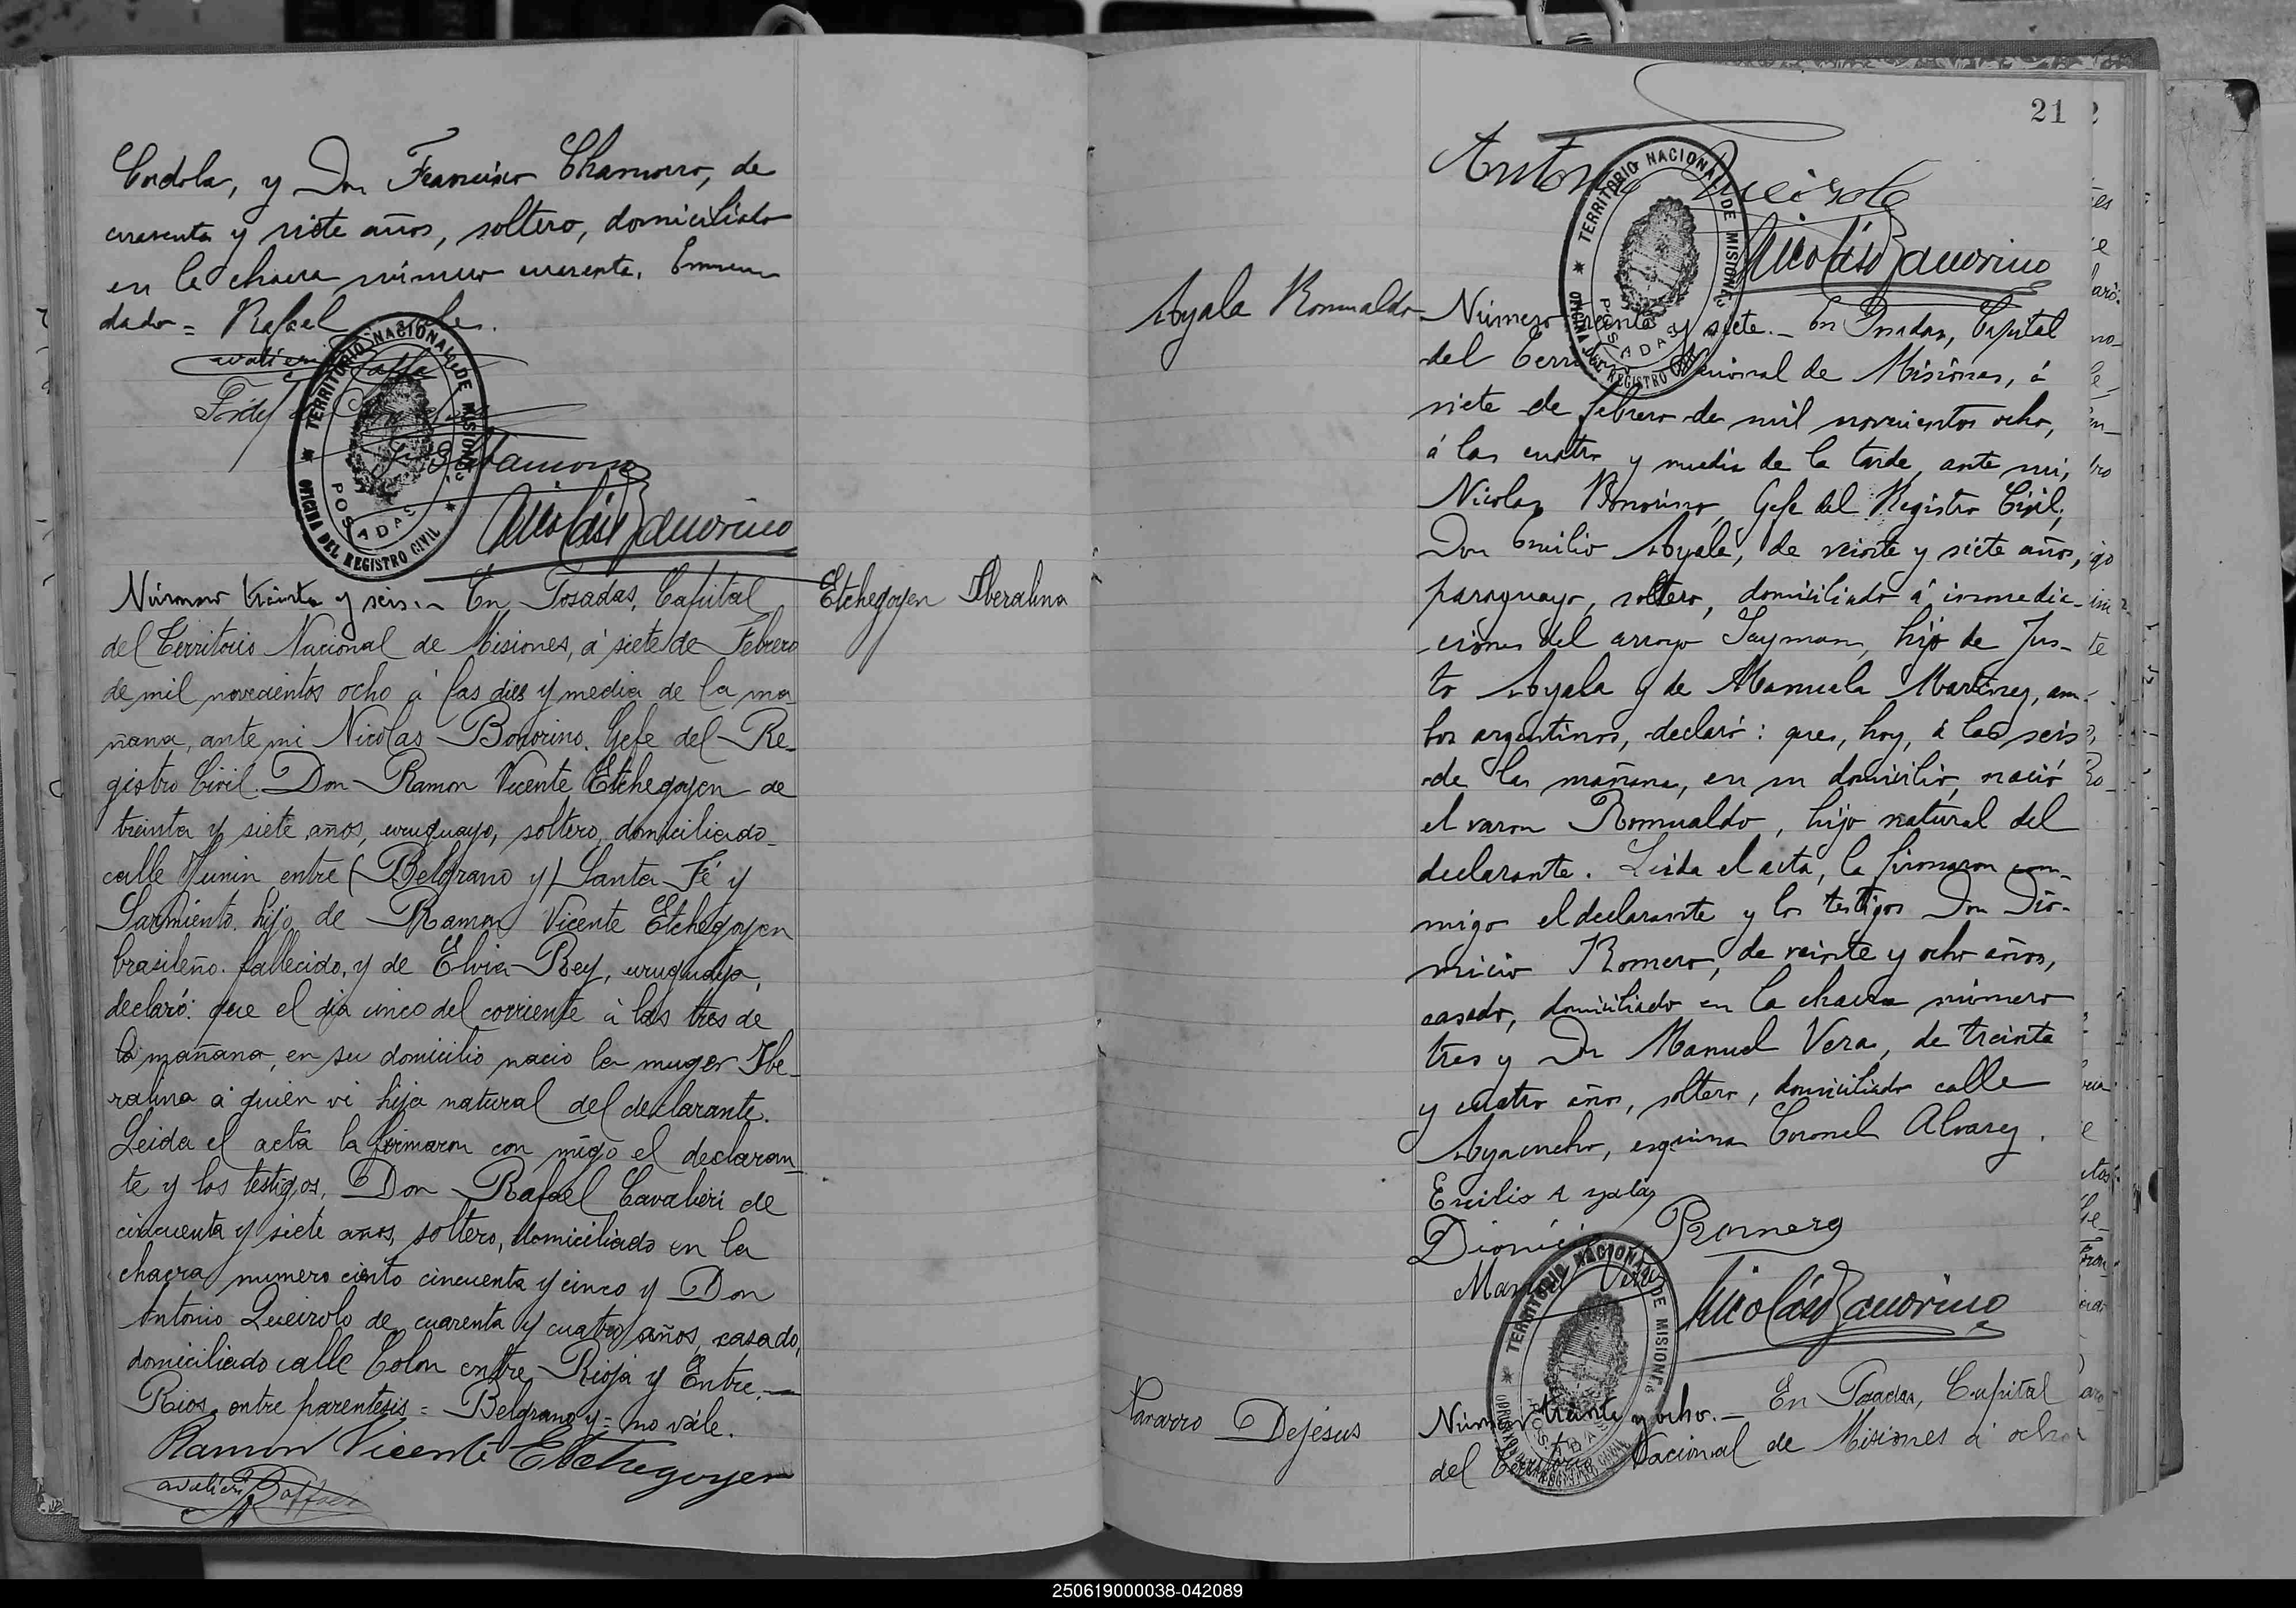 Cordola, y Don Francisco Chamorro, de
cuarenta y siete años, soltero, domiciliado
en la chacra número cuarenta. Enmen
dado = Rafael
TERRITORIO NACIONAL DE MISIONES
OFICINA DEL REGISTRO CIVIL
POSADAS
Nicolás Bonorino
Número treinta y seis.- En Posadas, Capital
Etchegoyen Iberalina
del Territorio Nacional de Misiones, á siete de Febrero
de mil novecientos ocho á las diez y media de la ma
ñana, ante mi Nicolas Bonorino. Gefe del Re-
gistro Civil. Don Ramon Vicente Etchegoyen de
treinta y siete años, uruguayo, soltero, domiciliado
calle Junin entre (Belgrano y) Santa Fé y
Sarmiento. hijo de Ramon Vicente Etchegoyen
brasileño. fallecido, y de Elvia Rey, uruguaya,
declaró: que el dia cinco del corriente á las tres de
la mañana, en su domicilio nacio la muger Ibe-
ralina á quien vi hija natural del declarante.
Leida el acta la firmaron con migo el declaran-
te y los testigos, Don Rafael Cavalieri de
cincuenta y siete años, soltero, domiciliado en la
chacra numero ciento cincuenta y cinco y Don
Antonio Queirolo de cuarenta y cuatro años, casado,
domiciliado calle Colon entre Rioja y Entre.-
Rios, entre parentesis = Belgrano y = no vale.
Ramon Vicente Etchegoyen
Cavalieri Raffaele
21
Antonio Queirolo
TERRITORIO NACIONAL DE MISIONES
OFICINA DEL REGISTRO CIVIL
POSADAS
Nicolás Bonorino
Ayala Romualdo
Número treinta y siete.- En Posadas, Capital
del Territorio Nacional de Misiones, á
siete de febrero de mil novecientos ocho,
á las cuatro y media de la tarde, ante mi,
Nicolas Bonorino, Gefe del Registro Civil,
Don Emilio Ayala, de veinte y siete años,
paraguayo, soltero, domiciliado á inmedia-
ciones del arroyo Zayman, hijo de Jus-
to Ayala y de Manuela Martinez, am-
bos argentinos, declaró: que, hoy, á las seis
de la mañana, en su domicilio, nació
el varon Romualdo, hijo natural del
declarante. Leida el acta, la firmaron con-
migo el declarante y los testigos Don Dio-
nicio Romero, de veinte y ocho años,
casado, domiciliado en la chacra número
tres y Don Manuel Vera, de treinta
y cuatro años, soltero, domiciliado calle
Ayacucho, esquina Coronel Alvarez.
Emilio Ayala
Dionicio Romero
Manuel Vera
TERRITORIO NACIONAL DE MISIONES
POSADAS
Nicolás Bonorino
Navarro Dejesus
Número treinta y ocho.- En Posadas, Capital
del Territorio Nacional de Misiones á ocho
250619000038-042089